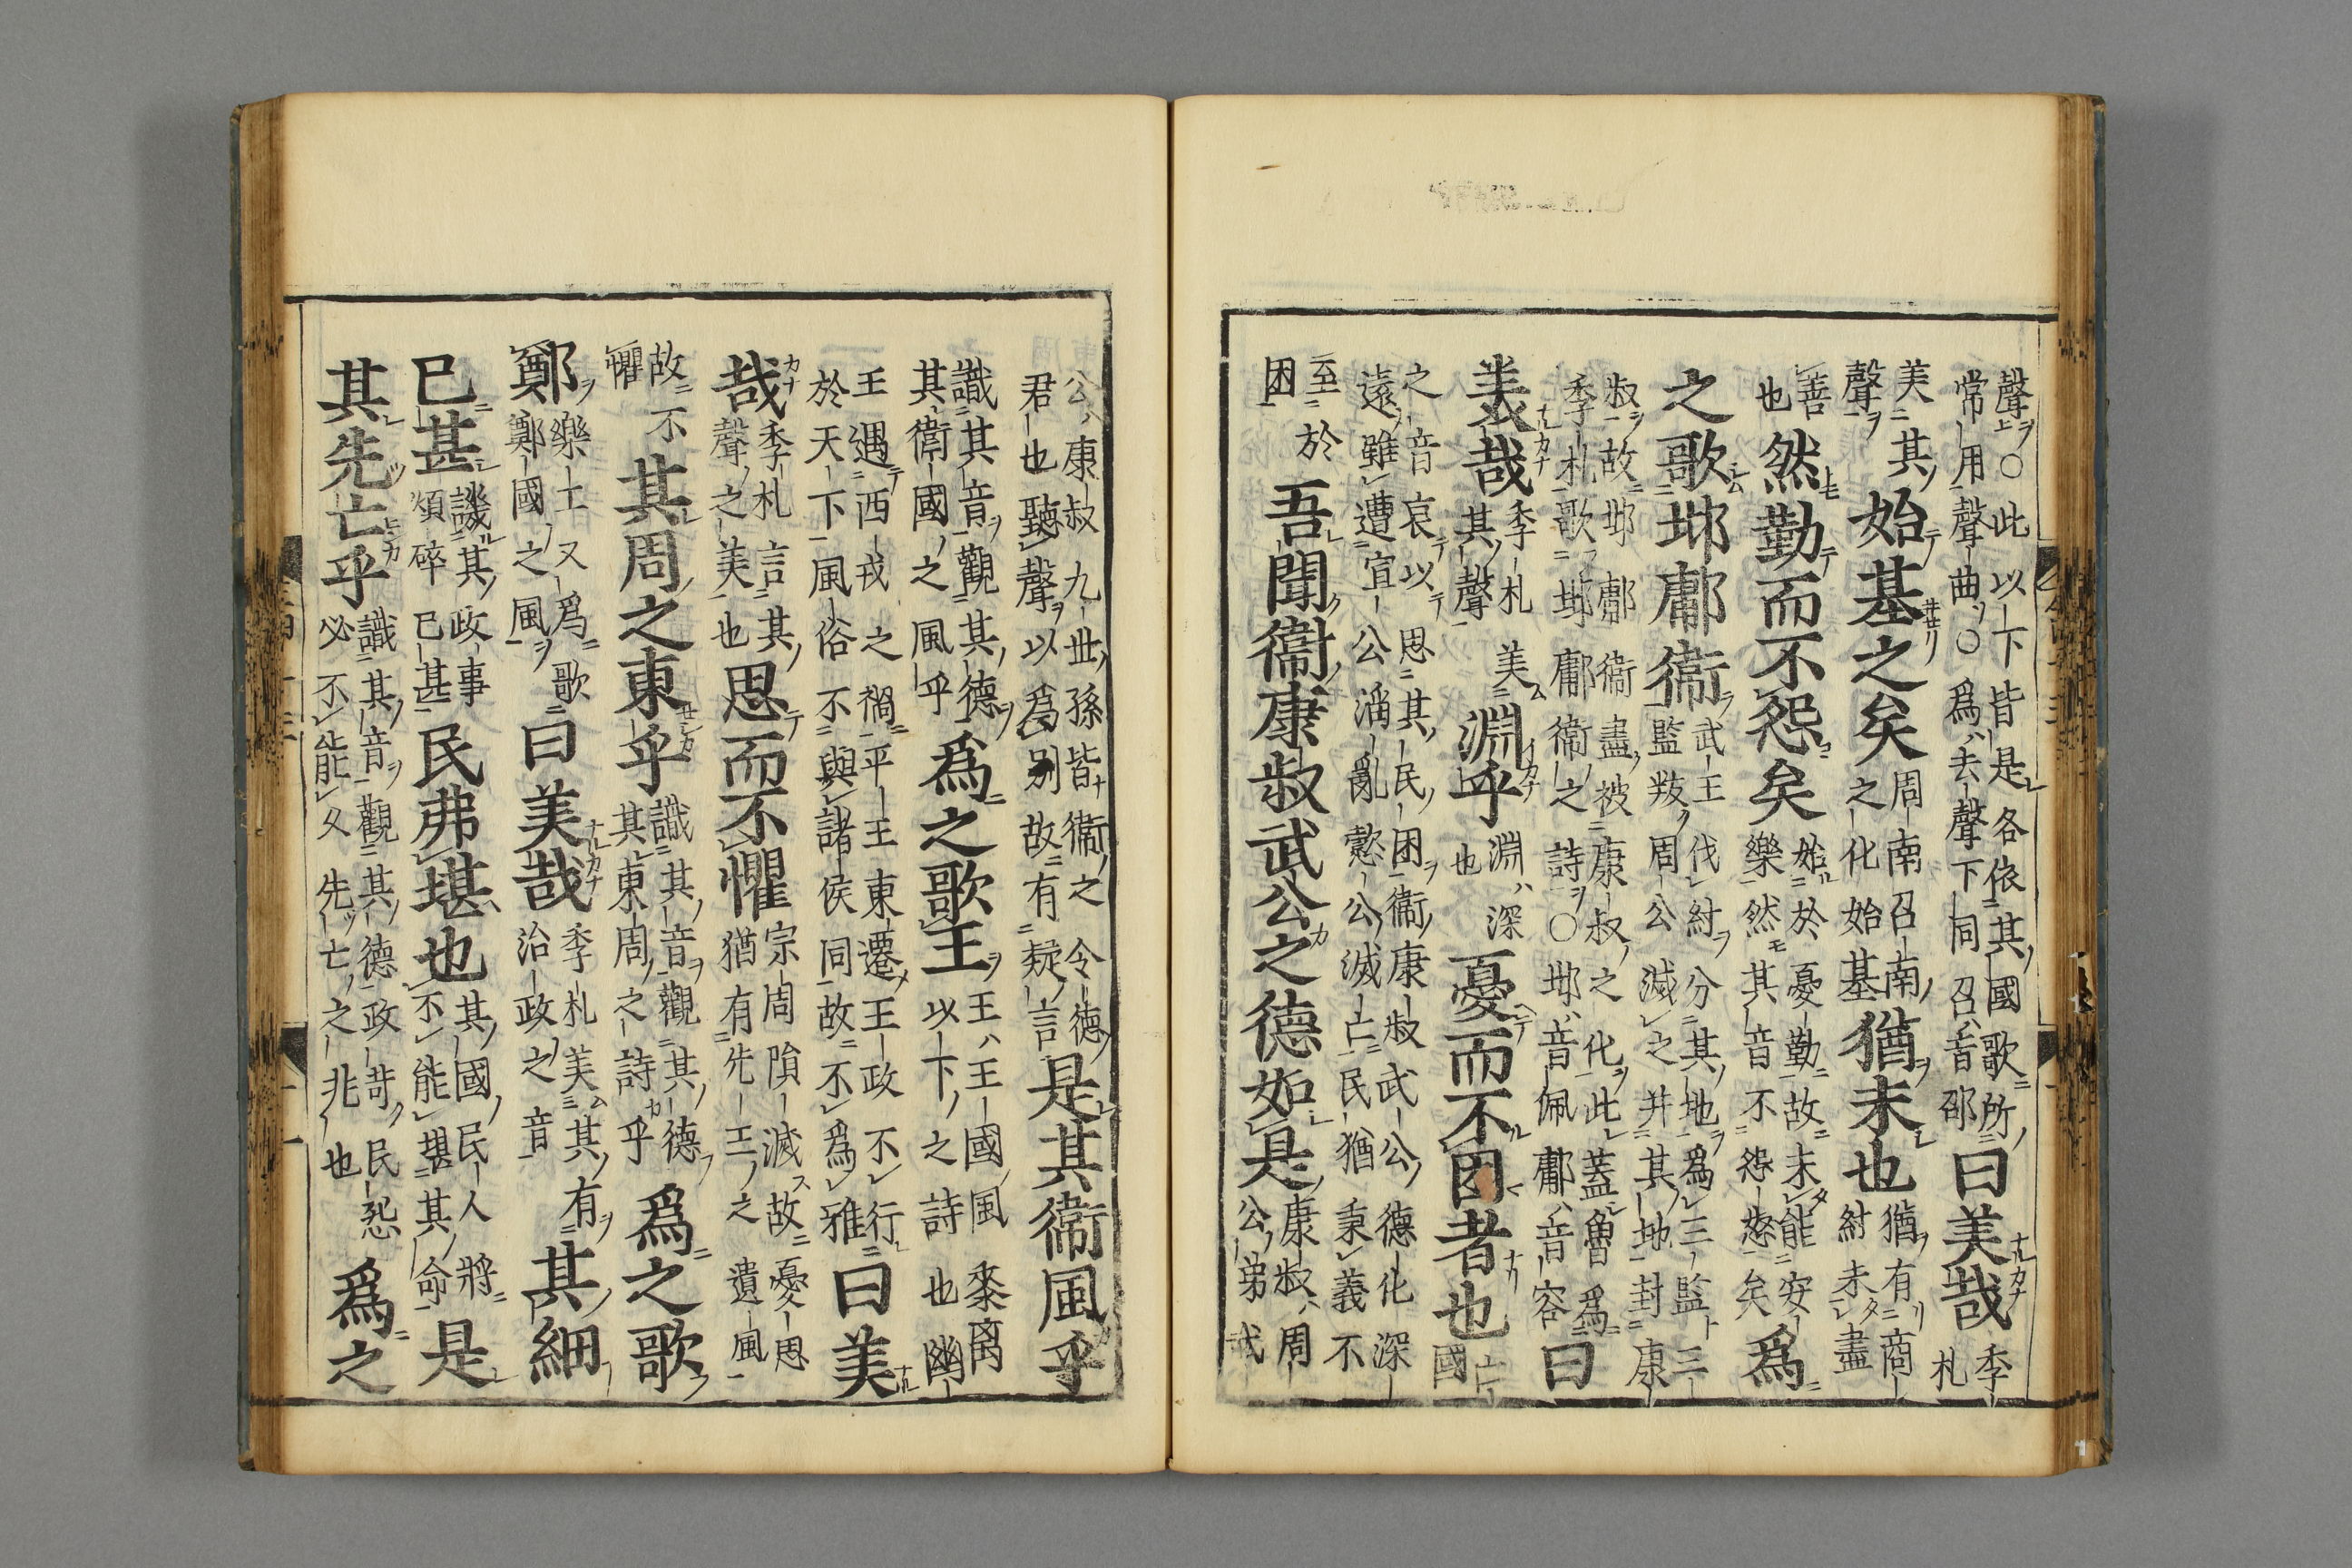 聲○此以下皆是各依其國歌所
常用聲曲○爲去聲下同召音邵
曰美哉
季
札
美其
聲
始基之矣
周南召南
之化始基
猶未也
猶有商
紂未盡
善
也
然勤而不怨矣
始於憂勤故未能安
樂然其音不怨怒矣
爲
之歌邶鄘衞
武王伐紂分其地爲三監三
監叛周公滅之并其地封康
叔故邶鄘衞盡被康叔之化此蓋魯爲
季札歌邶鄘衞之詩○邶音佩鄘音容
曰
美哉
季札美
其聲
淵乎
淵深
也
憂而不困者也
亡
國
之音哀以思其民困衞康叔武公德化深
遠雖遭宣公滔亂懿公滅亡民猶秉義不
至於
困
吾聞衞康叔武公之德如是
康叔周
公弟武
公康叔九世孫皆衞之令德
君也聽聲以爲別故有疑言
是其衞風乎
識其音觀其德
其衞國之風乎
爲之歌王
王王國風黍离
以下之詩也幽
王遇西戎之禍平王東遷王政不行
於天下風俗不與諸侯同故不爲雅
曰美
哉
季札言其
聲之美也
思而不懼
宗周隕滅故憂思
猶有先王之遺風
故不
懼
其周之東乎
識其音觀其德
其東周之詩乎
爲之歌
鄭
樂工又爲歌
鄭國之風
曰美哉
季札美其有
治政之音
其細
已甚
譏其政事
煩碎已甚
民弗堪也
其國民人將
不能堪其命
是
其先亡乎
識其音觀其德政苛民怨
必不能久先亡之兆也
爲之